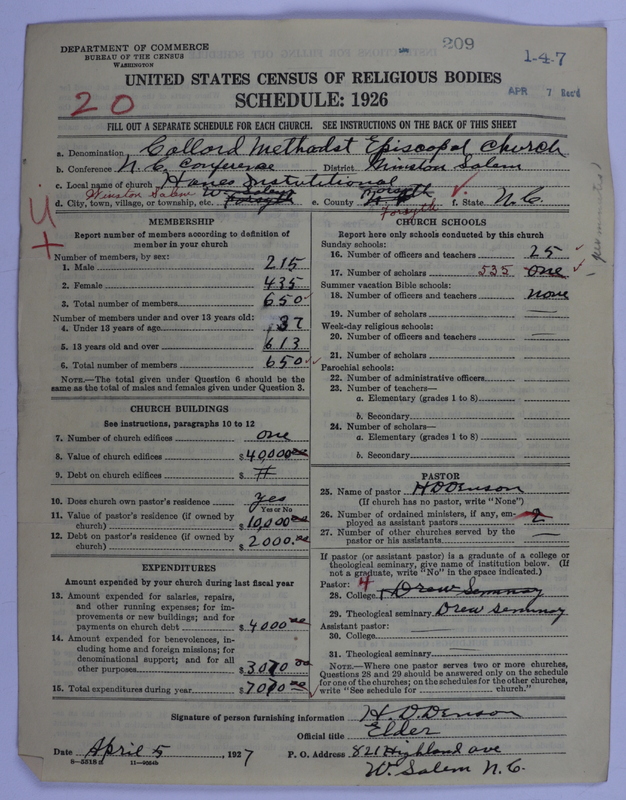 209
1-4-7
APR 7 Rec'd
DEPARTMENT OF COMMERCE
BUREAU OF THE CENSUS
WASHINGTON
UNITED STATES CENSUS OF RELIGIOUS BODIES
SCHEDULE: 1926
20
FILL OUT A SEPARATE SCHEDULE FOR EACH CHURCH. SEE INSTRUCTIONS ON THE BACK OF THIS SHEET
a. Denomination Collord Methodist Episcopal Church
b. Conference N.C. Conference District Winston Salem
c. Local name of church Hanes Institutional
Winston Salem
d. City, town, village, or township, etc. Forsyth e. County Forsyth f. State N.C.
Forsyth
MEMBERSHIP
Report number of members according to definition of
member in your church
Number of members, by sex:
1. Male 215
2. Female 435
3. Total number of members 650
Number of members under and over 13 years old:
4. Under 13 years of age 37
5. 13 years old and over 613
6. Total number of members 650
NOTE.—The total given under Question 6 should be the
same as the total of males and females given under Question 3.
CHURCH BUILDINGS
See instructions, paragraphs 10 to 12
7. Number of church edifices one
8. Value of church edifices $40,000 00
9. Debt on church edifices $
10. Does church own pastor's residence yes
Yes or No
11. Value of pastor's residence (if owned by
church) $10,000 00
12. Debt on pastor's residence (if owned by
church) $2000.00
EXPENDITURES
Amount expended by your church during last fiscal year
13. Amount expended for salaries, repairs,
and other running expenses; for im-
provements or new buildings; and for
payments on church debt $4000 00
14. Amount expended for benevolences, in-
cluding home and foreign missions; for
denominational support; and for all
other purposes $3070 00
15. Total expenditures during year $7070 00
CHURCH SCHOOLS
Report here only schools conducted by this church
Sunday schools:
16. Number of officers and teachers 25
17. Number of scholars 535 one
Summer vacation Bible schools:
18. Number of officers and teachers none
19. Number of scholars
Week-day religious schools:
20. Number of officers and teachers
21. Number of scholars
Parochial schools:
22. Number of administrative officers
23. Number of teachers—
a. Elementary (grades 1 to 8)
b. Secondary
24. Number of scholars—
a. Elementary (grades 1 to 8)
b. Secondary
PASTOR
25. Name of pastor H D Denson
(If church has no pastor, write "None")
26. Number of ordained ministers, if any, em-
ployed as assistant pastors 2
27. Number of other churches served by the
pastor or his assistants
If pastor (or assistant pastor) is a graduate of a college or
theological seminary, give name of institution below. (If
not a graduate, write "No" in the space indicated.)
Pastor: 4
28. College Drew Seminay
29. Theological seminary Drew Seminay
Assistant pastor:
30. College
31. Theological seminary
NOTE.—Where one pastor serves two or more churches,
Questions 28 and 29 should be answered only on the schedule
for one of the churches; on the schedules for the other churches,
write "See schedule for church."
Signature of person furnishing information H. D. Denson
Official title Elder
Date April 5, 1927 P. O. Address 821 Highland ave
8-5518a 11-9064b W. Salem N.C.